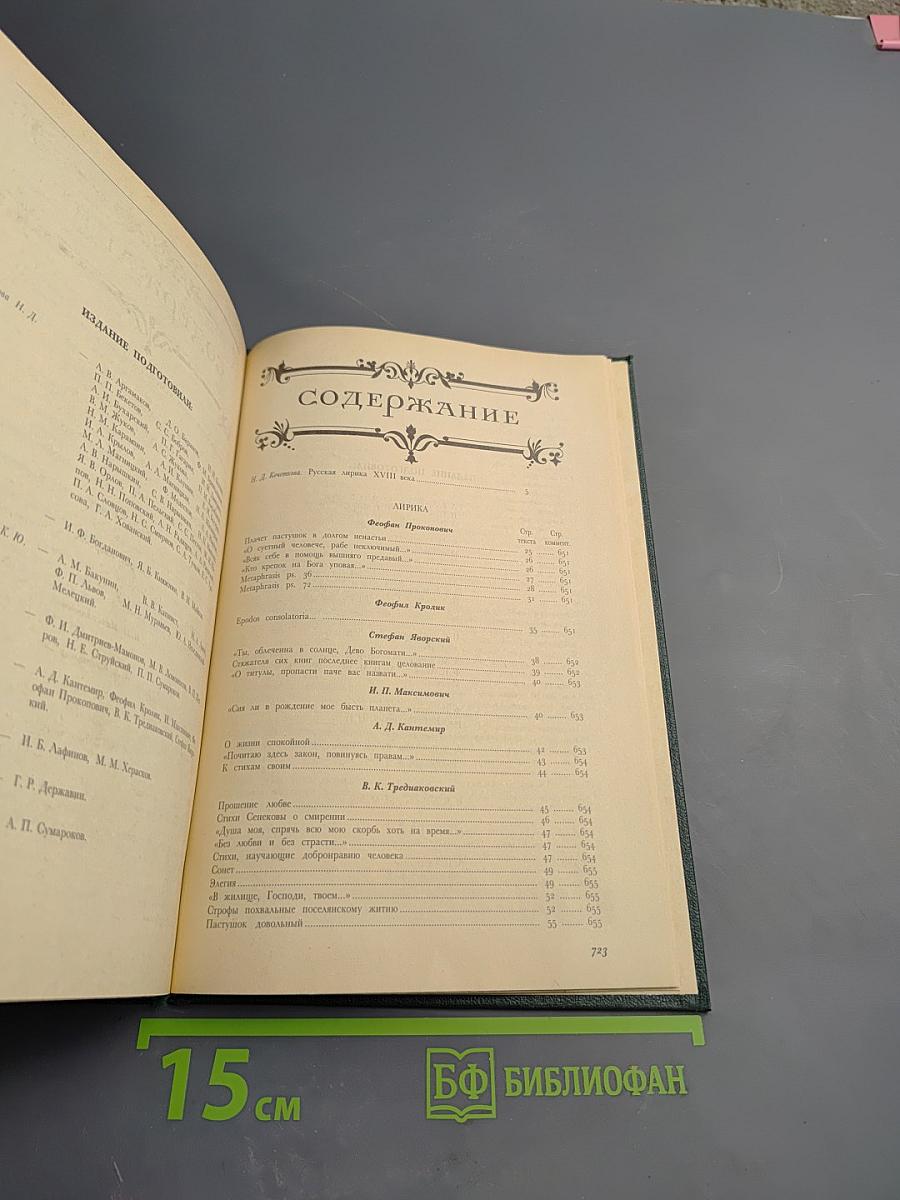 ова Н. Д.
ИЗДАНИЕ ПОДГОТОВИЛИ:
— А. В. Аргамаков,
П. П. Бекетов,
А. И. Бухарский,
В. М. Жуков,
Н. М. Карамзин,
И. А. Крылов,
М. Л. Магницкий,
А. В. Нарышкин,
Я. В. Орлов, П. А. Пельский,
пов, Н. Н. Поповский, А. Н. Радищев,
П. А. Словцов, Н. С. Смирнов,
сова, Г. А. Хованский.
— И. Ф. Богданович, Я. Б. Княжнин, В. И. Майков.
К. Ю.
— А. М. Бакунин, В. В. Капнист,
Ф. П. Львов, М. Н. Муравьев, Ю. А. Нелединский-
Мелецкий.
— Ф. И. Дмитриев-Мамонов, М. В. Ломоносов,
ров, Н. Е. Струйский, П. П. Сумароков.
— А. Д. Кантемир, Феофил Кролик, И. Максимович, Фе-
офан Прокопович, В. К. Тредиаковский, Стефан Явор-
кий.
— И. Б. Лафинов, М. М. Херасков.
— Г. Р. Державин.
А. П. Сумароков.
СОДЕРЖАНИЕ
Н. Д. Кочеткова. Русская лирика XVIII века ... 5
ЛИРИКА
Феофан Прокопович
Стр. текста Стр. коммент.
Плачет пастушок в долгом ненастьи ... 25 ... 651
«О суетный человече, рабе неключимый...» ... 26 ... 651
«Всяк себе в помощь вышняго предавый...» ... 26 ... 651
«Кто крепок на Бога уповая...» ... 27 ... 651
Metaphrasis ps. 36 ... 28 ... 651
Metaphrasis ps. 72 ... 31 ... 651
Феофил Кролик
Epodos consolatoria... ... 35 ... 651
Стефан Яворский
«Ты, облеченна в солнце, Дево Богомати...» ... 38 ... 652
Стяжателя сих книг последнее книгам целование ... 39 ... 652
«О титулы, пропасти паче вас назвати...» ... 40 ... 653
И. П. Максимович
«Сия ли в рождение мое бысть планета...» ... 40 ... 653
А. Д. Кантемир
О жизни спокойной ... 42 ... 653
«Почитаю здесь закон, повинуясь правам...» ... 43 ... 654
К стихам своим ... 44 ... 654
В. К. Тредиаковский
Прошение любве ... 45 ... 654
Стихи Сенековы о смирении ... 46 ... 654
«Душа моя, спрячь всю мою скорбь хоть на время...» ... 47 ... 654
«Без любви и без страсти...» ... 47 ... 654
Стихи, научающие добронравию человека ... 47 ... 654
Сонет ... 49 ... 655
Элегия ... 49 ... 655
«В жилище, Господи, твоем...» ... 52 ... 655
Строфы похвальные поселянскому житию ... 52 ... 655
Пастушок довольный ... 55 ... 655
723
15 см
БФ БИБЛИОФАН